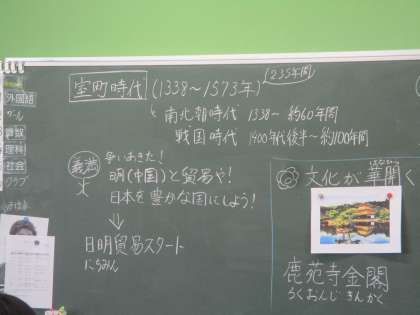 室町時代 (1338～1573年) 235年間
南北朝時代 1338～ 約60年間
戦国時代 1400年代後半～約100年間
義満 争いあきた!
明(中国)と貿易や!
日本を豊かな国にしよう!
⇓
日明貿易スタート
にちみん
文化が華開く
鹿苑寺金閣
ろくおんじ きんかく
外国語
算数
理科
社会
クラブ